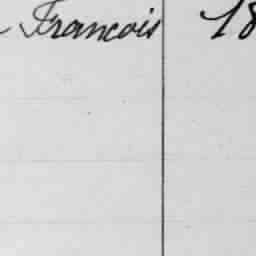 Francois 18